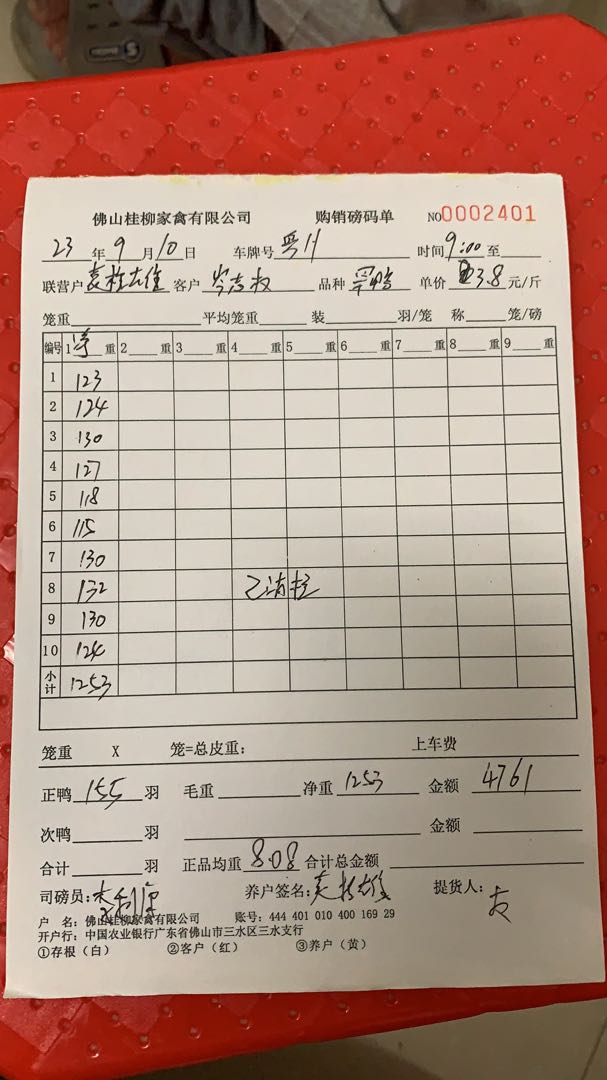 佛山桂柳家禽有限公司 购销磅码单 NO0002401
23 年 9 月 10 日 车牌号 时间 9:00 至
联营户 客户 岑志权 品种 单价 3.8 元/斤
笼重 平均笼重 装 羽/笼 称 笼/磅
编号 1 净 重 2 重 3 重 4 重 5 重 6 重 7 重 8 重 9 重
1 123
2 124
3 130
4 127
5 118
6 115
7 130
8 132 已消栏
9 130
10 124
小计 1253
笼重 X 笼=总皮重: 上车费
正鸭 155 羽 毛重 净重 1253 金额 4761
次鸭 羽 金额
合计 羽 正品均重 8.08 合计总金额
司磅员: 养户签名: 提货人:
户 名: 佛山桂柳家禽有限公司 账号: 444 401 010 400 169 29
开户行: 中国农业银行广东省佛山市三水区三水支行
①存根(白) ②客户(红) ③养户(黄)